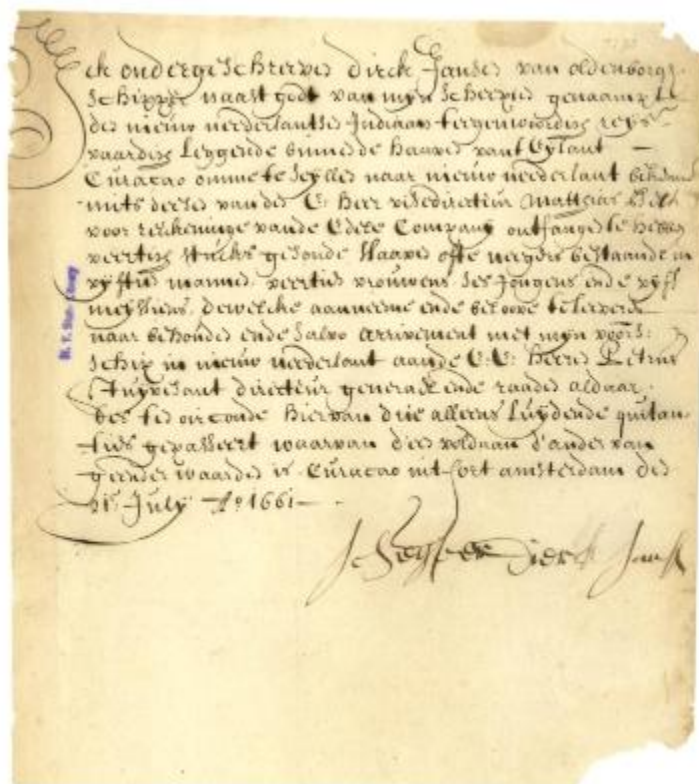 Ick ondergeschreven dirck Jansen van oldenborgh
Schipper naast godt van myn scheepie genaampt
den nieuw nederlantsen Indiaan tegenwoordich reys
vaardich Leggende binnende haaven vant Eylant
Curacao omme te seyllen naar nieuw nederlant bekenne
mits desen van den E: Heer visedirectuir Matthias Beck
voor reekeninge vande Edele Company ontfangen te hebben
veertich stucks gesonde slaaven ofte neegers bestaande in
vyftien mannen veertien vrouwens ses Jongens ende vyff
meyskens dewelcke aanneeme ende beloove te leveren
naar behouden ende salvo arrivement met myn voors:
schip in nieuw nederlant aande E: E: Heeren Petrus
Stuyvesant directeur generael ende raaden aldaar
des ten oirconde hiervan drie alleens Luydende quitan
tien gepasseert waarvan d'een voldaan d'ander van
geender waarden is Curacao int fort amsterdam den
July Ao 1661
Schepper Dierck Jansz
N. Y. State Library